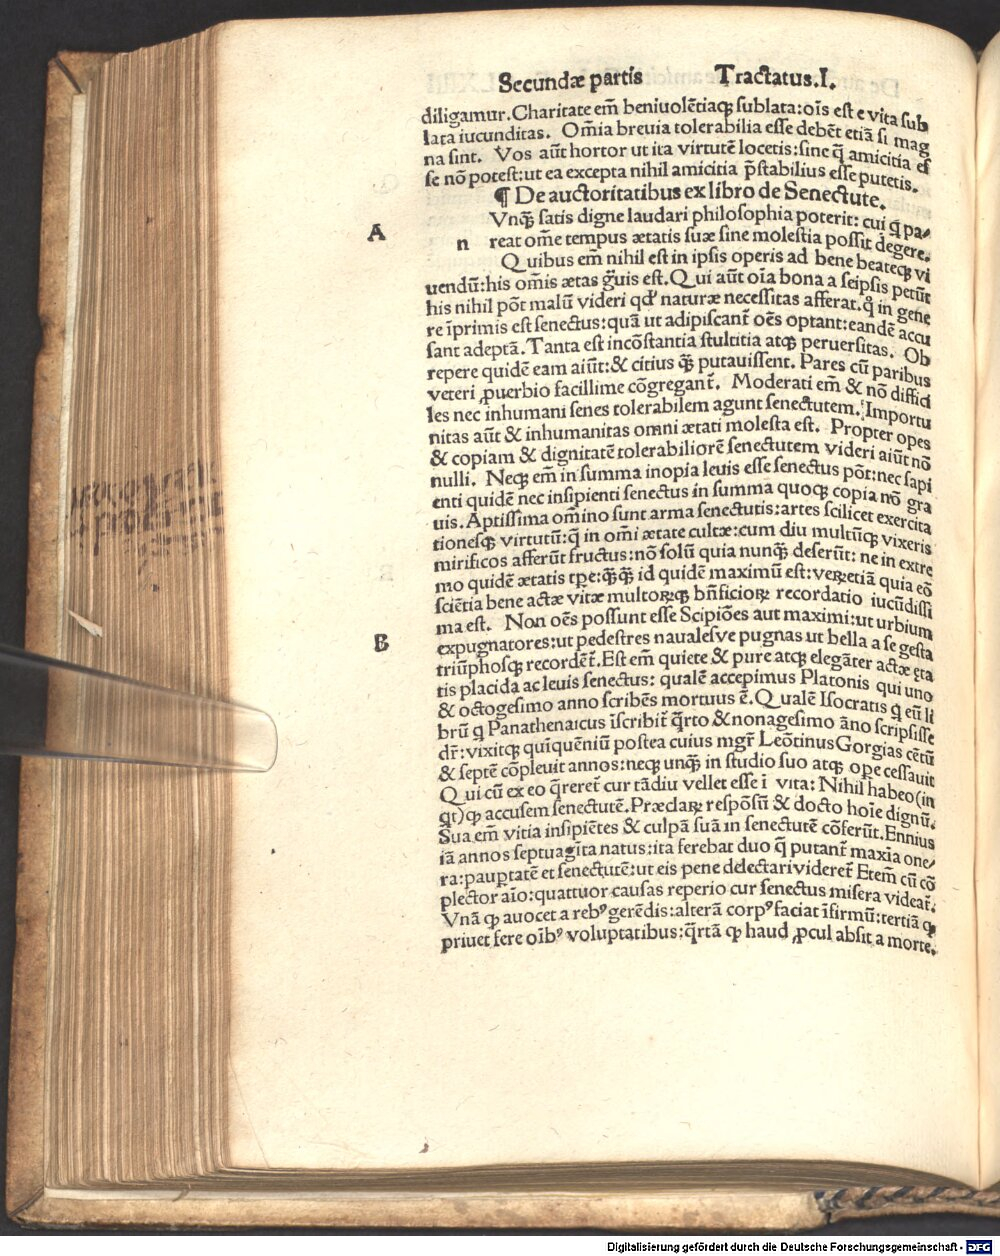 Secundæ partis Tractatus.I.
diligamur.Charitate em̄ beniuolẽtiaqꝫ ſublata:oı̄s eſt e vita ſub
lata iucunditas. Om̄ia breuia tolerabilia eſſe debẽt etiã ſi mag
na ſint. Vos aũt hortor ut ita virtutẽ locetis:ſine q̄ amicitia eſ
ſe nõ poteſt:ut ea excepta nihil amicitia p̄ſtabilius eſſe putetis.
¶ De auctoritatibus ex libro de Senectute.
A
Vnqꝫ̃ ſatis digne laudari philoſophia poterit: cui q̄ pa⸗
n reat om̄e tempus ætatis ſuæ ſine moleſtia poſſit degere.
Quibus em̄ nihil eſt in ipſis operis ad bene beateqꝫ vi
uendũ:his om̄is ætas g̃uis eſt.Qui aũt oı̄a bona a ſeipſis petũt
his nihil põt malũ videri qđ naturæ neceſſitas afferat.q̊ in gene
re ı̄primis eſt ſenectus:quã ut adipiſcant̃ oẽs optant:eandẽ accu
ſant adeptã.Tanta eſt incõſtantia ſtultitia atqꝫ peruerſitas. Ob
repere quidẽ eam aiũt:& citius qꝫ̃ putauiſſent. Pares cũ paribus
veteri ꝓuerbio facillime cõgregant̃. Moderati em̄ & nõ diffici
les nec inhumani ſenes tolerabilem agunt ſenectutem. Importu
nitas aũt & inhumanitas omni ætati moleſta eſt. Propter opes
& copiam & dignitatẽ tolerabiliorẽ ſenectutem videri aiũt nõ
nulli. Neqꝫ em̄ in ſumma inopia leuis eſſe ſenectus põt:nec ſapi
enti quidẽ nec inſipienti ſenectus in ſumma quoqꝫ copia nõ gra
uis.Aptiſſima om̄ino ſunt arma ſenectutis:artes ſcilicet exercita
tioneſqꝫ virtutũ:q̄ in om̄i ætate cultæ:cum diu multũqꝫ vixeris
mirificos afferũt fructus:nõ ſolũ quia nunqꝫ̃ deſerũt: ne in extre
mo quidẽ ætatis tꝑe:qꝫ̃qꝫ̃ id quidẽ maximũ eſt:veꝝetiã quia cõ
ſciẽtia bene actæ vitæ multoꝝqꝫ bñficioꝝ recordatio iucũdiſſi
ma eſt. Non oẽs poſſunt eſſe Scipiões aut maximi:ut urbium
B
expugnatores:ut pedeſtres naualeſve pugnas ut bella a ſe geſta
triũphoſqꝫ recordẽt̃.Eſt em̄ quiete & pure atqꝫ elegãter actæ eta
tis placida ac leuis ſenectus: qualẽ accepimus Platonis qui uno
& octogeſimo anno ſcribẽs mortuus ẽ.Qualẽ Iſocratis q̇ eũ li
brũ q̇ Panathenaicus ı̄ſcribit̃ q̃rto & nonageſimo ãno ſcripſiſſe
dr̃:vixitqꝫ quı̄quẽniũ poſtea cuius mgr̃ Leõtinus Gorgias cẽtũ
& ſeptẽ cõpleuit annos:neqꝫ unqꝫ̃ in ſtudio ſuo atqꝫ oꝑe ceſſauit
Qui cũ ex eo q̃reret̃ cur tãdiu vellet eſſe ı̄ vita: Nihil habeo(in
qt)ꝙ accuſem ſenectutẽ.Præclaꝝ reſpõſũ & docto hoı̄e dignũ.
Sua em̄ vitia inſipiẽtes & culpã ſuã in ſenectutẽ cõferũt.Ennius
iã annos ſeptuagı̄ta natus:ita ferebat duo q̄ putant̃ maxı̄a one⸗
ra:pauꝑtatẽ et ſenectutẽ:ut eis pene delectari videret̃ Etem̄ cũ cõ
plector aı̄o:quattuor cauſas reperio cur ſenectus miſera videat̃.
Vnã ꝙ auocet a rebꝰ gerẽdis:alterã corpꝰ faciat ı̄firmũ:tertiã ꝙ
priuet fere oı̄bꝰ voluptatibus:q̃rtã ꝙ haud ꝓcul abſit a morte.
Digitalisierung gefördert durch die Deutsche Forschungsgemeinschaft - DFG